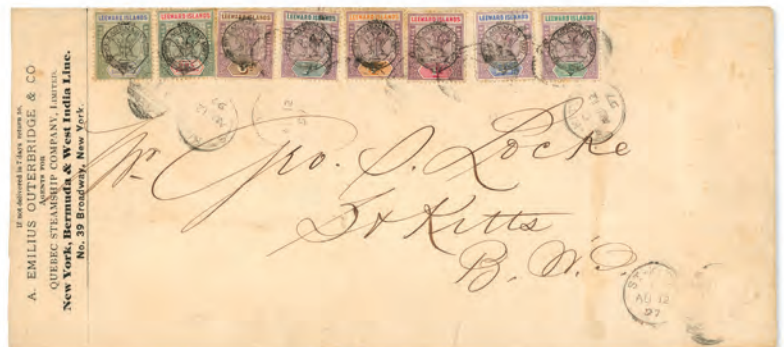 If not delivered in 7 days return to,
A. EMILIUS OUTERBRIDGE & CO
AGENTS FOR
QUEBEC STEAMSHIP COMPANY, LIMITED.
New York, Bermuda & West India Line.
No. 39 Broadway, New York.
LEEWARD ISLANDS LEEWARD ISLANDS LEEWARD ISLANDS LEEWARD ISLANDS LEEWARD ISLANDS LEEWARD ISLANDS LEEWARD ISLANDS LEEWARD ISLANDS
Mr. Geo. S. Locke
St Kitts
B. W. I.
AU 12
97